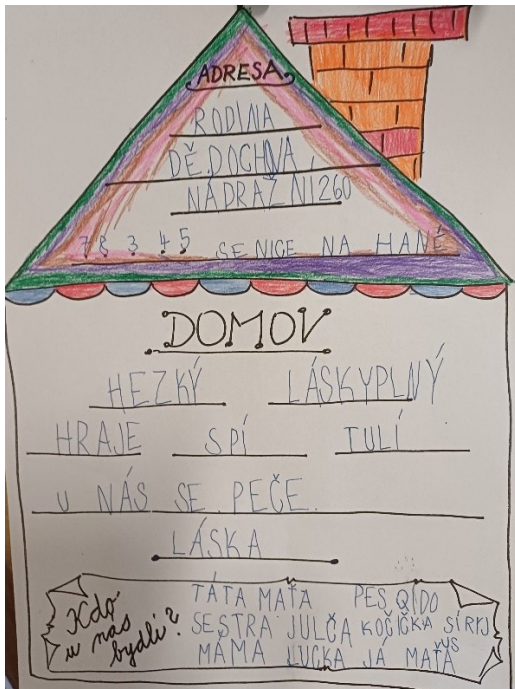 ADRESA
RODINA
DĚDOCHOVA
NÁDRAŽNÍ 260
783 45 SENICE NA HANÉ
DOMOV
HEZKÝ LÁSKYPLNÝ
HRAJE SPÍ TULÍ
U NÁS SE PEČE.
LÁSKA
Kdo u nás bydlí?
TÁTA MAŤA PES QÍDO
SESTRA JULČA KOČIČKA
MÁMA LUCKA JÁ MAŤA